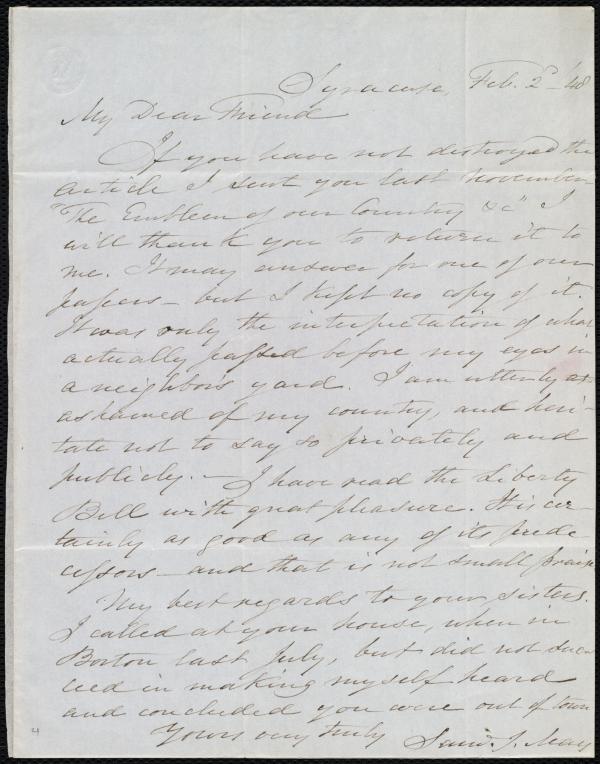 Syracuse, Feb. 2d '48
My Dear Friend
If you have not destroyed the
article I sent you last November
"The Emblem of our Country &c" I
will thank you to return it to
me. It may answer for one of our
papers — but I kept no copy of it.
It was only the interpretation of what
actually passed before my eyes in
a neighbors yard. I am utterly a-
ashamed of my country, and hesi-
tate not to say so privately and
publicly. — I have read the Liberty
Bell with great pleasure. It is cer-
tainly as good as any of its prede-
cessors — and that is not small praise
My best regards to your sisters.
I called at your house, when in
Boston last July, but did not suc-
ceed in making myself heard
and concluded you were out of town
Yours very truly Saml. J. May
4